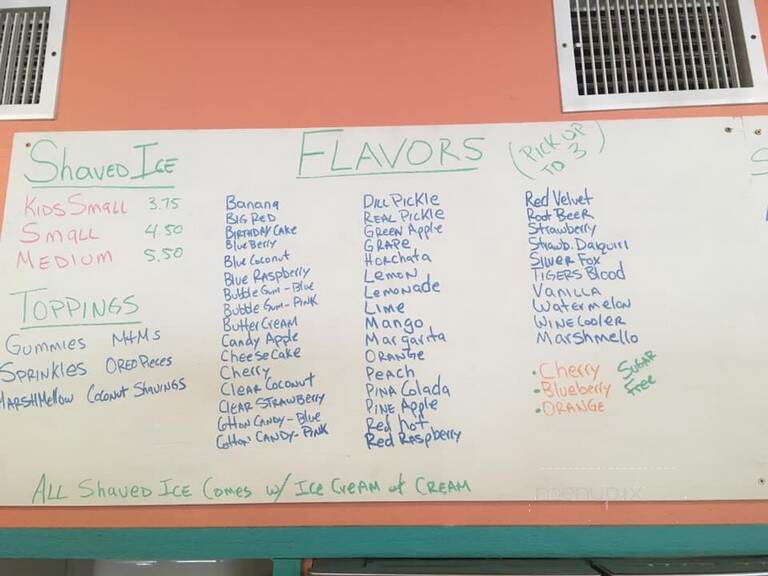 SHAVED ICE
KIDS SMALL 3.75
SMALL 4.50
MEDIUM 5.50
TOPPINGS
GUMMIES M+MS
SPRINKLES OREO PIECES
MARSHMELLOW COCONUT SHAVINGS
FLAVORS (PICK UP TO 3)
Banana
BIG RED
BIRTHDAY CAKE
Blue Berry
Blue Coconut
Blue Raspberry
Bubble Gum - Blue
Bubble Gum - PINK
Butter CREAM
Candy Apple
Cheese CAKE
Cherry
CLEAR COCONUT
CLEAR STRAWBERRY
Cotton CANDY - Blue
Cotton CANDY - PINK
DILL PICKLE
REAL PICKLE
GREEN APPLE
GRAPE
HORCHATA
LEMON
LEMONADE
LIME
MANGO
MARGARITA
ORANGE
PEACH
PINA COLADA
PINE APPLE
Red Hot
Red Raspberry
Red Velvet
Root Beer
Strawberry
Strawb. Daiquiri
SILVER FOX
TIGERS Blood
VANILLA
Watermelon
WINE COOLER
MARSHMELLO
• Cherry
• Blueberry
• ORANGE
SUGAR
Free
ALL SHAVED ICE COMES W/ ICE CREAM & CREAM
menupix